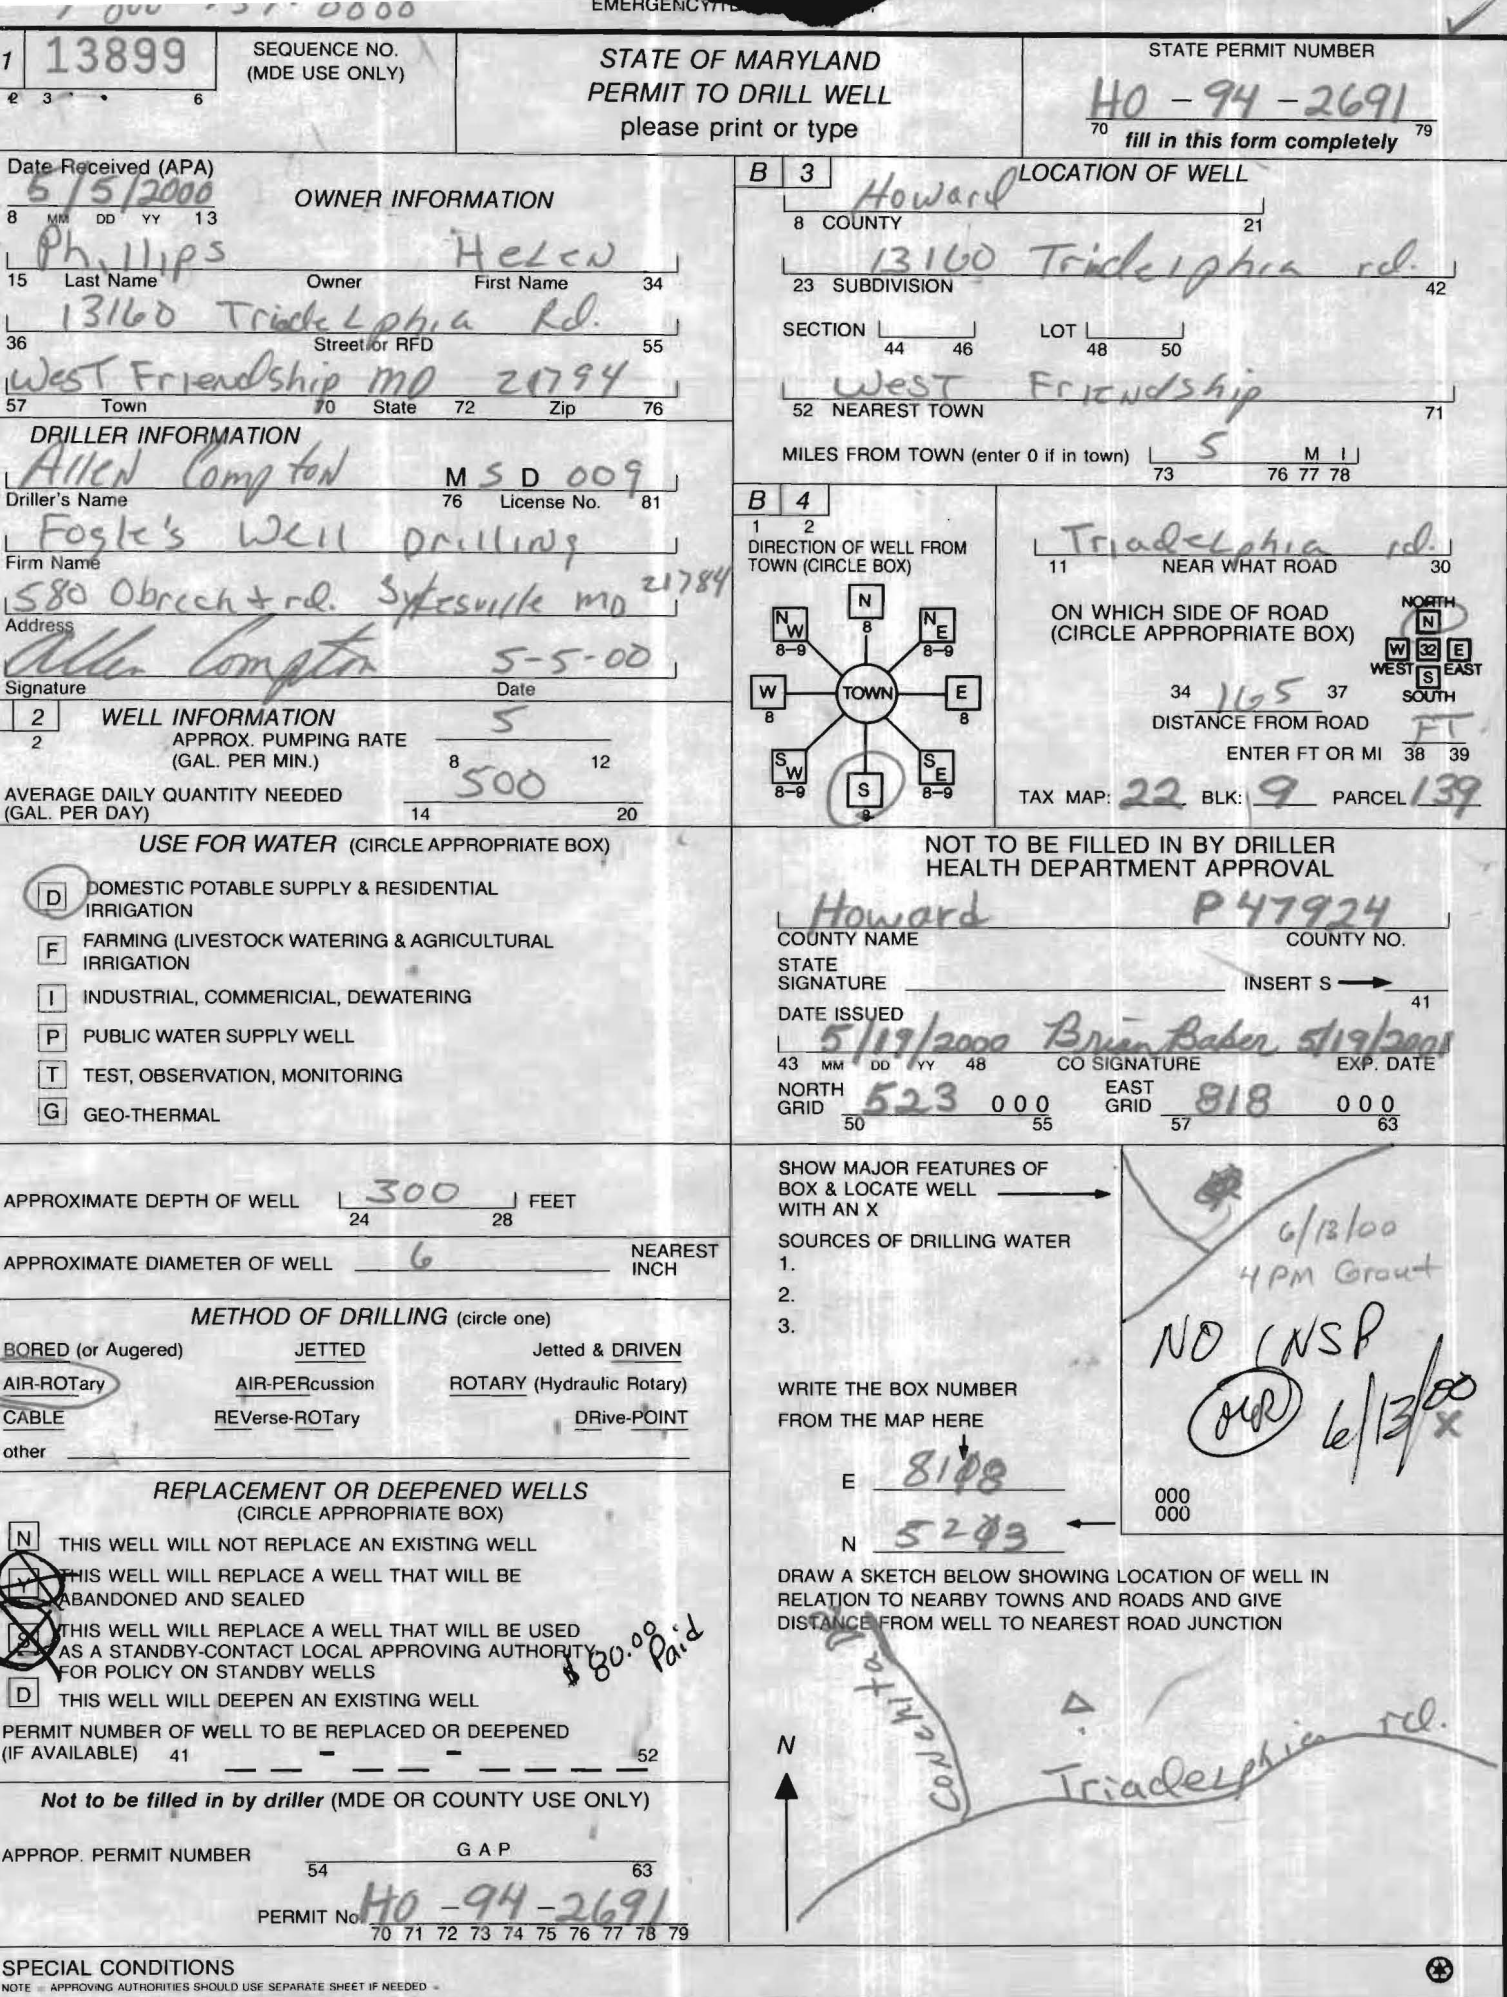 EMERGENCY/T
1 13899
2 3 6
SEQUENCE NO.
(MDE USE ONLY)
STATE OF MARYLAND
PERMIT TO DRILL WELL
please print or type
STATE PERMIT NUMBER
HO - 94 - 2691
70 fill in this form completely 79
Date Received (APA)
5/5/2000
8 MM DD YY 13
OWNER INFORMATION
Phillips Helen
15 Last Name Owner First Name 34
13160 Triadelphia Rd.
36 Street or RFD 55
West Friendship MD 21794
57 Town 70 State 72 Zip 76
DRILLER INFORMATION
Allen Compton M S D 009
Driller's Name 76 License No. 81
Fogle's Well Drilling
Firm Name
580 Obrecht rd. Sykesville MD 21784
Address
Allen Compton 5-5-00
Signature Date
2 WELL INFORMATION
2
APPROX. PUMPING RATE 5
(GAL. PER MIN.) 8 12
AVERAGE DAILY QUANTITY NEEDED 500
(GAL. PER DAY) 14 20
USE FOR WATER (CIRCLE APPROPRIATE BOX)
D DOMESTIC POTABLE SUPPLY & RESIDENTIAL
IRRIGATION
F FARMING (LIVESTOCK WATERING & AGRICULTURAL
IRRIGATION
I INDUSTRIAL, COMMERICIAL, DEWATERING
P PUBLIC WATER SUPPLY WELL
T TEST, OBSERVATION, MONITORING
G GEO-THERMAL
APPROXIMATE DEPTH OF WELL 300 FEET
24 28
APPROXIMATE DIAMETER OF WELL 6 NEAREST
INCH
METHOD OF DRILLING (circle one)
BORED (or Augered) JETTED Jetted & DRIVEN
AIR-ROTary AIR-PERcussion ROTARY (Hydraulic Rotary)
CABLE REVerse-ROTary DRive-POINT
other
REPLACEMENT OR DEEPENED WELLS
(CIRCLE APPROPRIATE BOX)
N THIS WELL WILL NOT REPLACE AN EXISTING WELL
Y THIS WELL WILL REPLACE A WELL THAT WILL BE
ABANDONED AND SEALED
S THIS WELL WILL REPLACE A WELL THAT WILL BE USED
AS A STANDBY-CONTACT LOCAL APPROVING AUTHORITY
FOR POLICY ON STANDBY WELLS
$80.00 Paid
D THIS WELL WILL DEEPEN AN EXISTING WELL
PERMIT NUMBER OF WELL TO BE REPLACED OR DEEPENED
(IF AVAILABLE) 41 - - 52
Not to be filled in by driller (MDE OR COUNTY USE ONLY)
APPROP. PERMIT NUMBER G A P
54 63
PERMIT No. HO - 94 - 2691
70 71 72 73 74 75 76 77 78 79
SPECIAL CONDITIONS
NOTE - APPROVING AUTHORITIES SHOULD USE SEPARATE SHEET IF NEEDED -
B 3 LOCATION OF WELL
Howard
8 COUNTY 21
13160 Triadelphia rd.
23 SUBDIVISION 42
SECTION LOT
44 46 48 50
West Friendship
52 NEAREST TOWN 71
MILES FROM TOWN (enter 0 if in town) 5 M I
73 76 77 78
B 4
1 2
DIRECTION OF WELL FROM
TOWN (CIRCLE BOX)
N
8
NW NE
8-9 8-9
W TOWN E
8 8
SW SE
8-9 8-9
S
8
Triadelphia rd.
11 NEAR WHAT ROAD 30
ON WHICH SIDE OF ROAD
(CIRCLE APPROPRIATE BOX)
NORTH
N
W 32 E
WEST S EAST
SOUTH
34 165 37
DISTANCE FROM ROAD FT
ENTER FT OR MI 38 39
TAX MAP: 22 BLK: 9 PARCEL 139
NOT TO BE FILLED IN BY DRILLER
HEALTH DEPARTMENT APPROVAL
Howard P 47924
COUNTY NAME COUNTY NO.
STATE
SIGNATURE INSERT S
41
DATE ISSUED
5/19/2000 Brian Baker 5/19/2001
43 MM DD YY 48 CO SIGNATURE EXP. DATE
NORTH
GRID 523 000
50 55
EAST
GRID 818 000
57 63
SHOW MAJOR FEATURES OF
BOX & LOCATE WELL
WITH AN X
SOURCES OF DRILLING WATER
1.
2.
3.
6/13/00
4 PM Grout
NO INSP
6/13/00
X
WRITE THE BOX NUMBER
FROM THE MAP HERE
E
N
000
000
DRAW A SKETCH BELOW SHOWING LOCATION OF WELL IN
RELATION TO NEARBY TOWNS AND ROADS AND GIVE
DISTANCE FROM WELL TO NEAREST ROAD JUNCTION
N
Triadelphia rd.